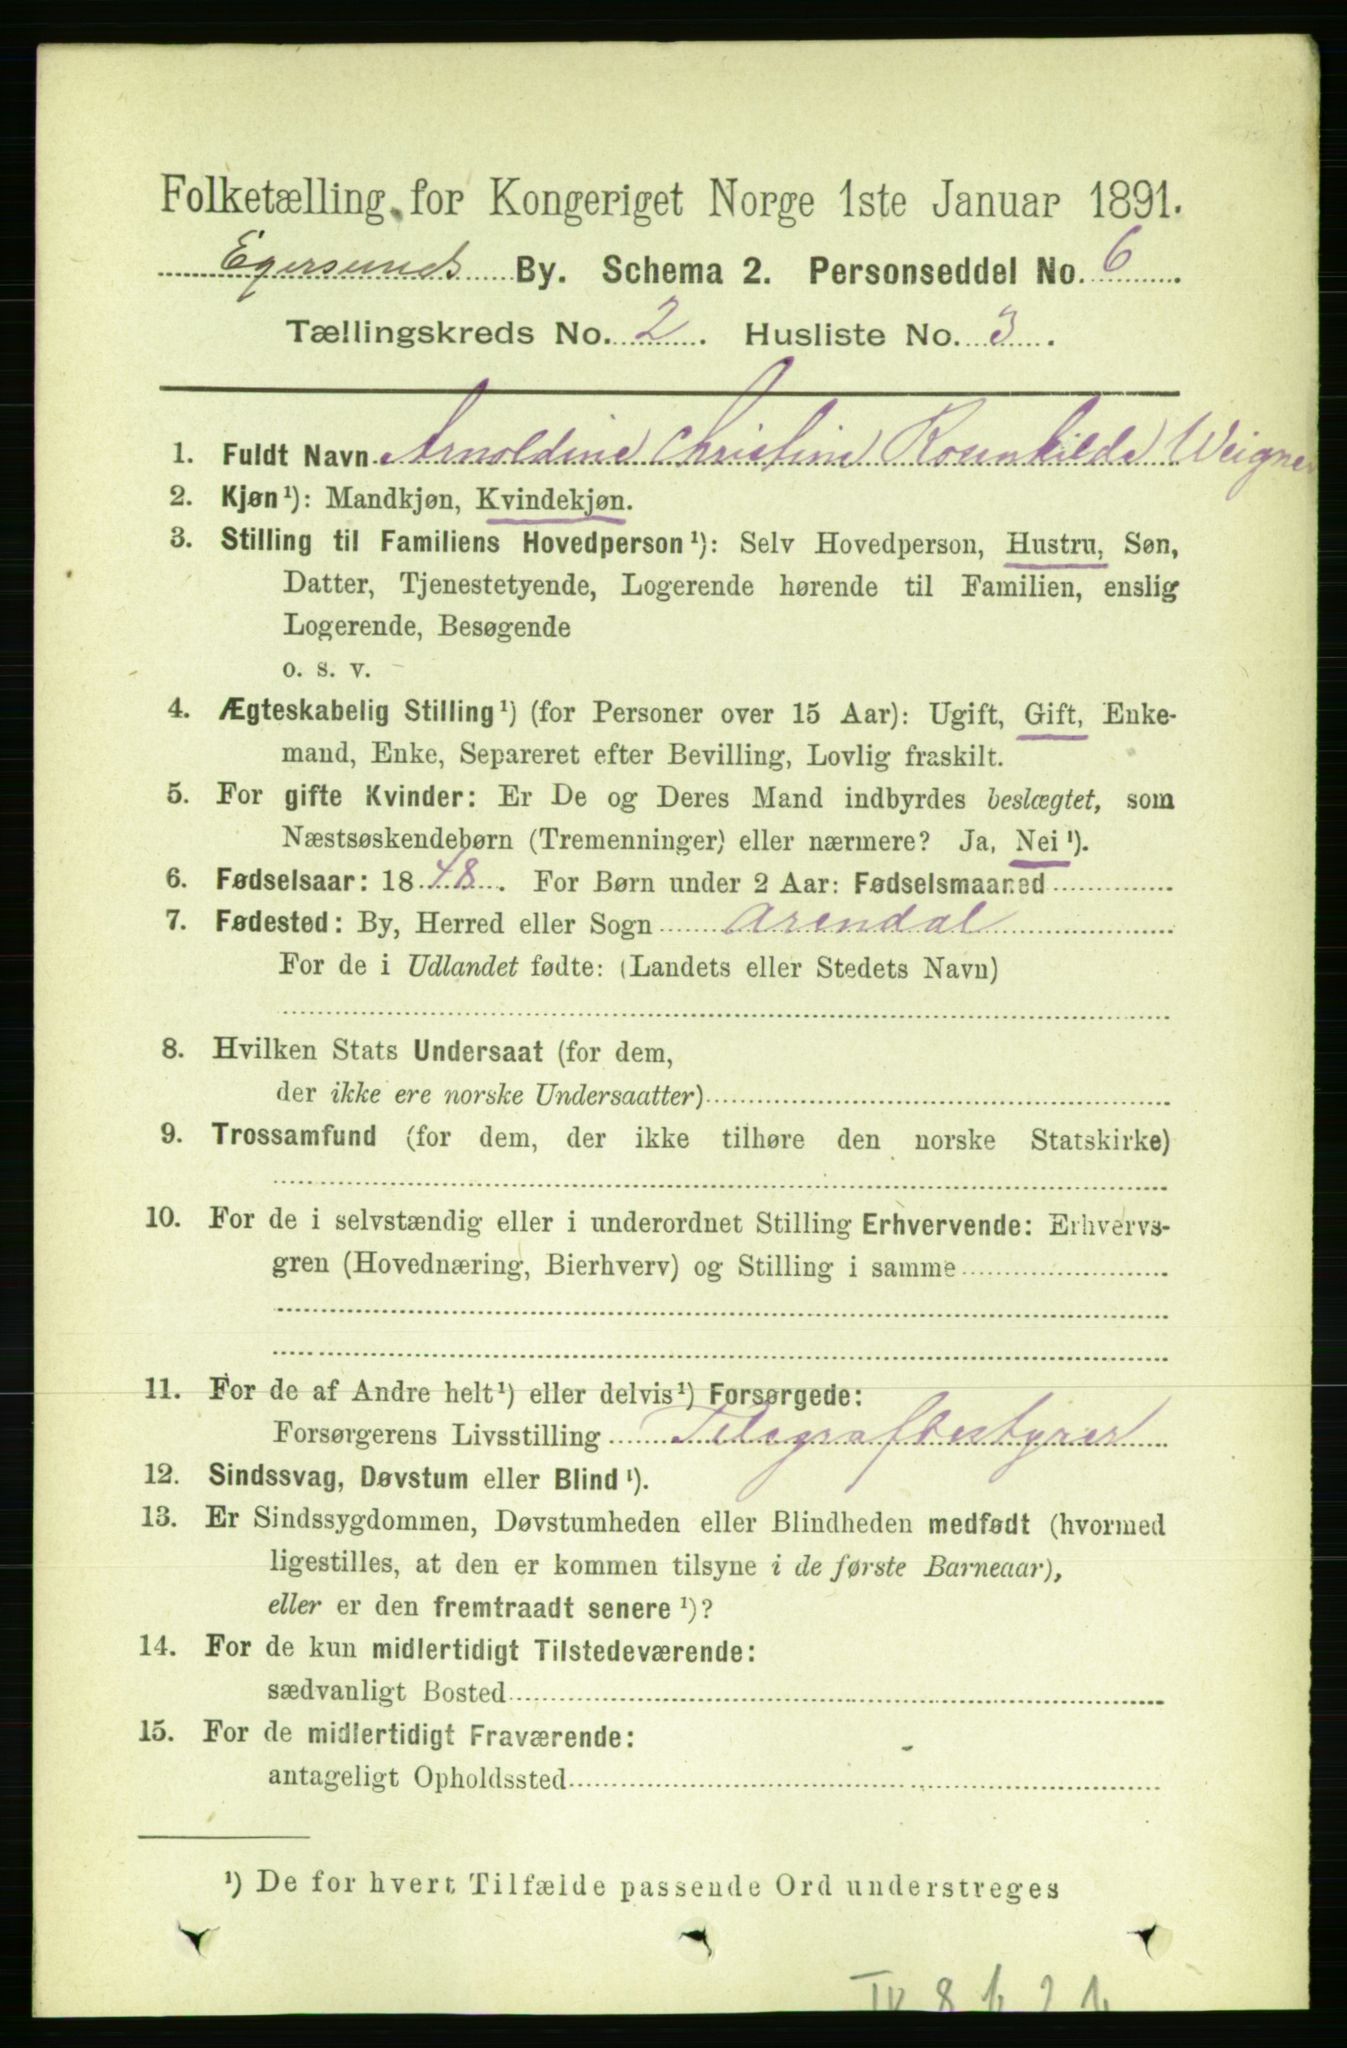 Folketælling for Kongeriget Norge 1ste Januar 1891.
Egersunds By. Schema 2. Personseddel No. 6
Tællingskreds No. 2. Husliste No. 3.
1. Fuldt Navn Arnoldine Christine Rosenkilde Weigner
2. Kjøn¹): Mandkjøn, Kvindekjøn.
3. Stilling til Familiens Hovedperson¹): Selv Hovedperson, Hustru, Søn,
Datter, Tjenestetyende, Logerende hørende til Familien, enslig
Logerende, Besøgende
o. s. v.
4. Ægteskabelig Stilling¹) (for Personer over 15 Aar): Ugift, Gift, Enke-
mand, Enke, Separeret efter Bevilling, Lovlig fraskilt.
5. For gifte Kvinder: Er De og Deres Mand indbyrdes beslægtet, som
Næstsøskendebørn (Tremenninger) eller nærmere? Ja, Nei¹).
6. Fødselsaar: 1848. For Børn under 2 Aar: Fødselsmaaned
7. Fødested: By, Herred eller Sogn Arendal
For de i Udlandet fødte: (Landets eller Stedets Navn)
8. Hvilken Stats Undersaat (for dem,
der ikke ere norske Undersaatter)
9. Trossamfund (for dem, der ikke tilhøre den norske Statskirke)
10. For de i selvstændig eller i underordnet Stilling Erhvervende: Erhvervs-
gren (Hovednæring, Bierhverv) og Stilling i samme
11. For de af Andre helt¹) eller delvis¹) Forsørgede:
Forsørgerens Livsstilling Telegrafbestyrer
12. Sindssvag, Døvstum eller Blind¹).
13. Er Sindssygdommen, Døvstumheden eller Blindheden medfødt (hvormed
ligestilles, at den er kommen tilsyne i de første Barneaar),
eller er den fremtraadt senere¹)?
14. For de kun midlertidigt Tilstedeværende:
sædvanligt Bosted
15. For de midlertidigt Fraværende:
antageligt Opholdssted
¹) De for hvert Tilfælde passende Ord understreges